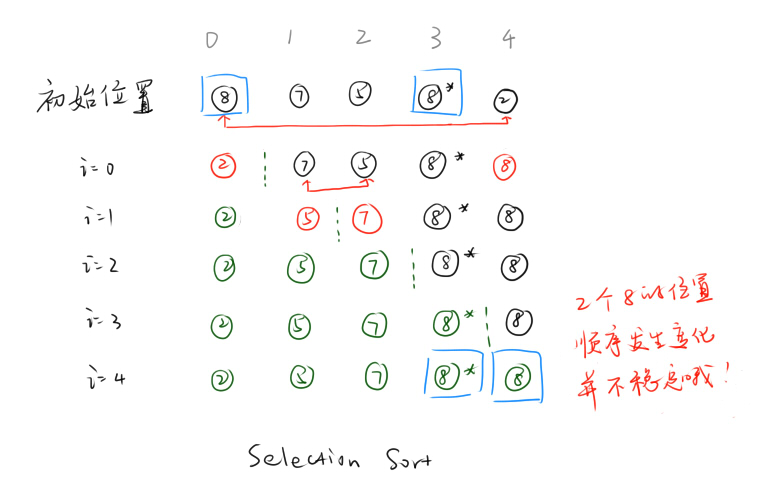 0 1 2 3 4
初始位置 8 7 5 8* 2
i=0 2 7 5 8* 8
i=1 2 5 7 8* 8
i=2 2 5 7 8* 8
i=3 2 5 7 8* 8
i=4 2 5 7 8* 8
2个8的位置
顺序发生变化
并不稳定哦!
Selection Sort